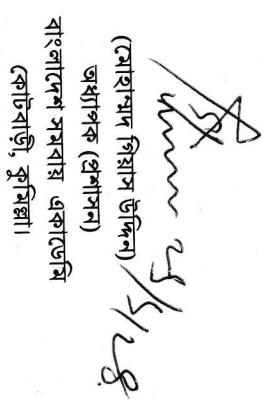 ২৮/৫/২৪
(মোহাম্মদ গিয়াস উদ্দিন)
অধ্যাপক (প্রশাসন)
বাংলাদেশ সমবায় একাডেমি
কোটবাড়ী, কুমিল্লা।